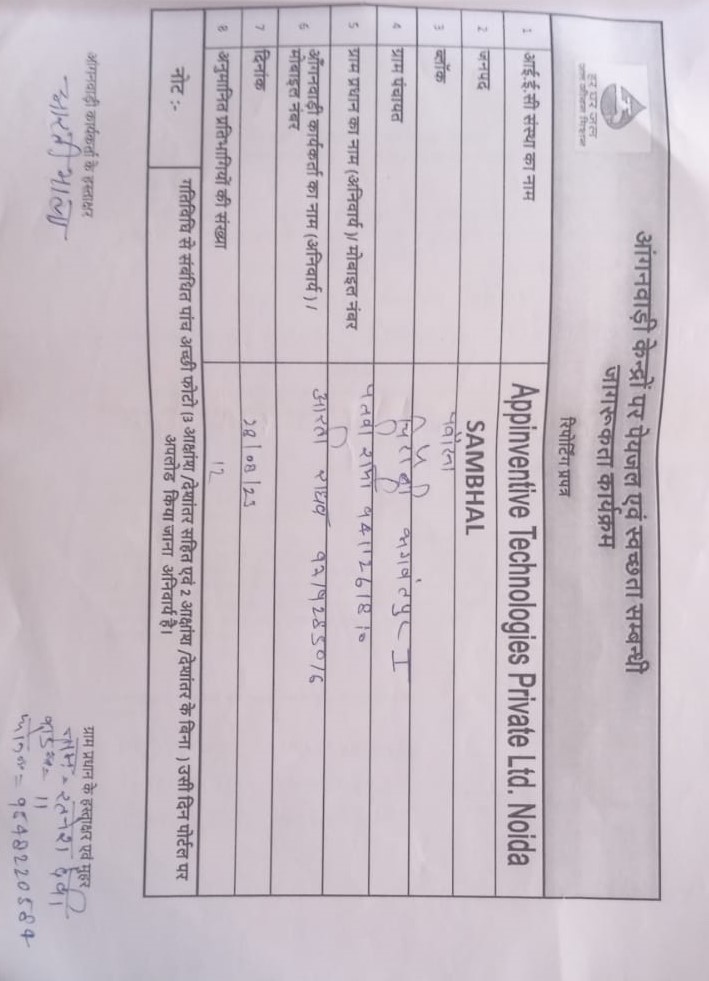 हर घर जल
जल जीवन मिशन
आंगनवाड़ी केन्द्रों पर पेयजल एवं स्वच्छता सम्बन्धी
जागरूकता कार्यक्रम
रिपोर्टिंग प्रपत्र
1 आई.ई.सी संस्था का नाम Appinventive Technologies Private Ltd. Noida
2 जनपद SAMBHAL
3 ब्लॉक पवांसा
4 ग्राम पंचायत भगवंतपुर I
5 ग्राम प्रधान का नाम (अनिवार्य)/ मोबाइल नंबर
6 आँगनवाड़ी कार्यकर्ता का नाम (अनिवार्य) /
मोबाइल नंबर
आरती राघव
7 दिनांक
8 अनुमानित प्रतिभागियों की संख्या 12
नोट :- गतिविधि से संबंधित पांच अच्छी फोटो (3 आक्षांश /देशांतर सहित एवं 2 आक्षांश /देशांतर के बिना ) उसी दिन पोर्टल पर
अपलोड किया जाना अनिवार्य है।
आंगनवाड़ी कार्यकर्ता के हस्ताक्षर
ग्राम प्रधान के हस्ताक्षर एवं मुहर
नाम = रतनेश देवी
11
= 9548220584